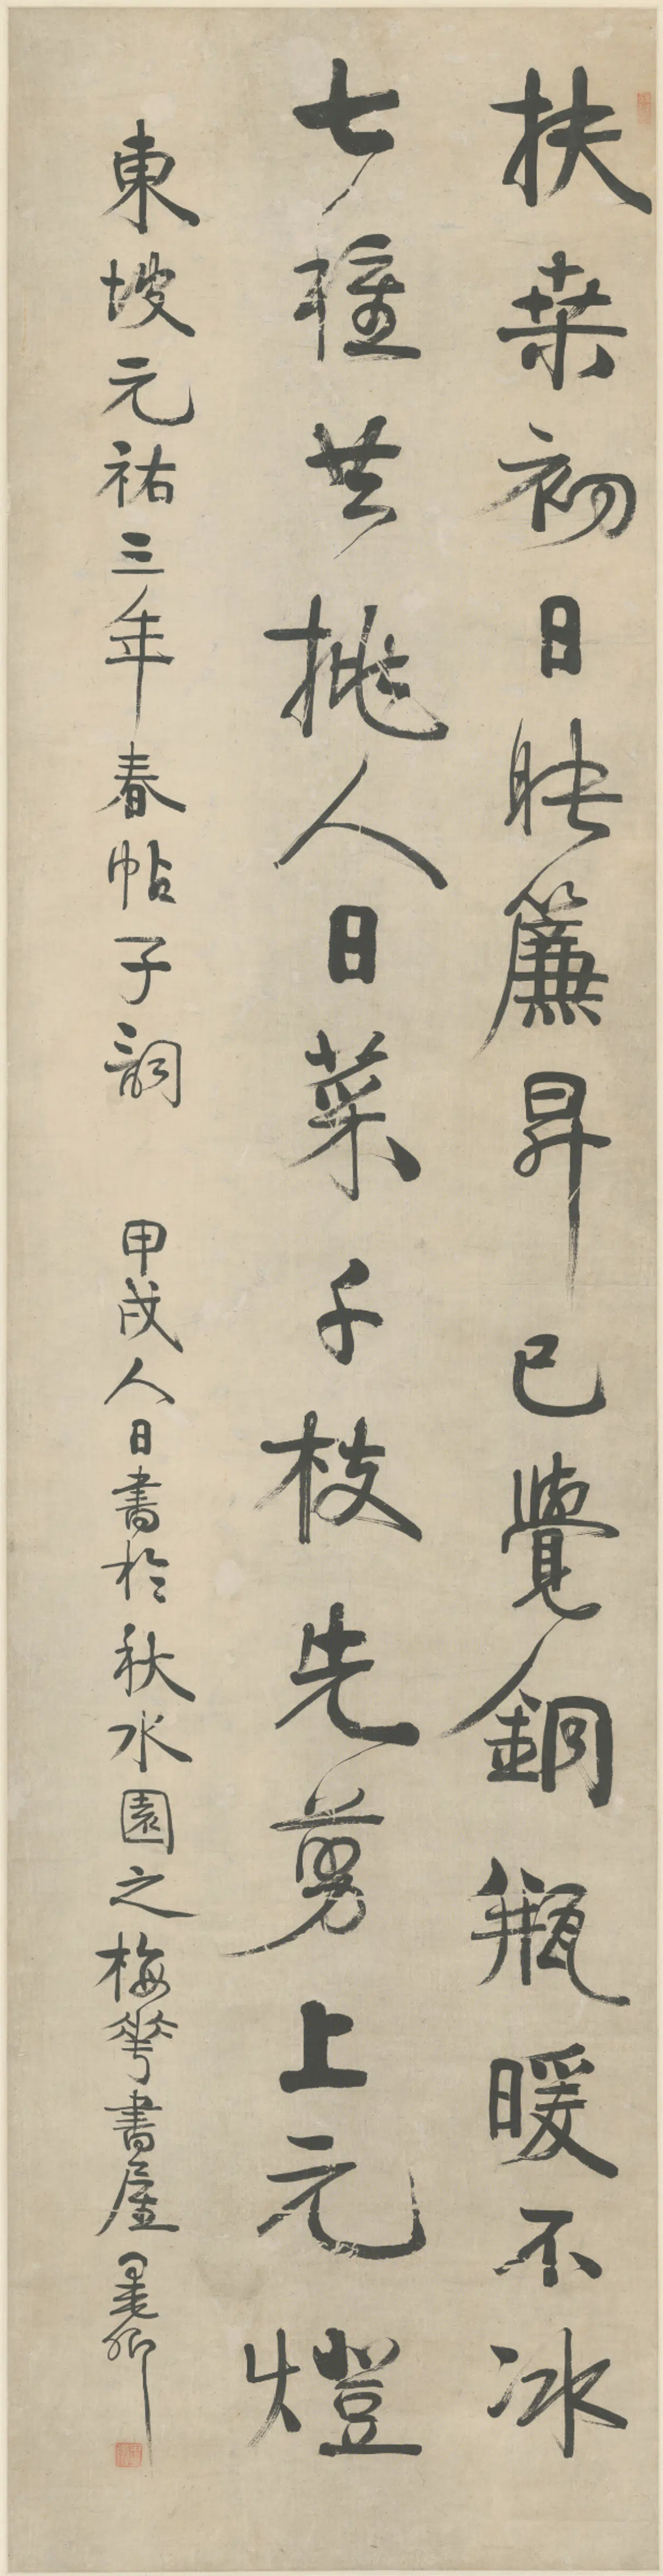 扶桒初日暎簾昇已覺銅瓶暖不冰
七種共挑人日菜千枝先剪上元燈
東坡元祐三年春帖子詞 甲戌人日書於秋水園之梅華書屋 墨卿